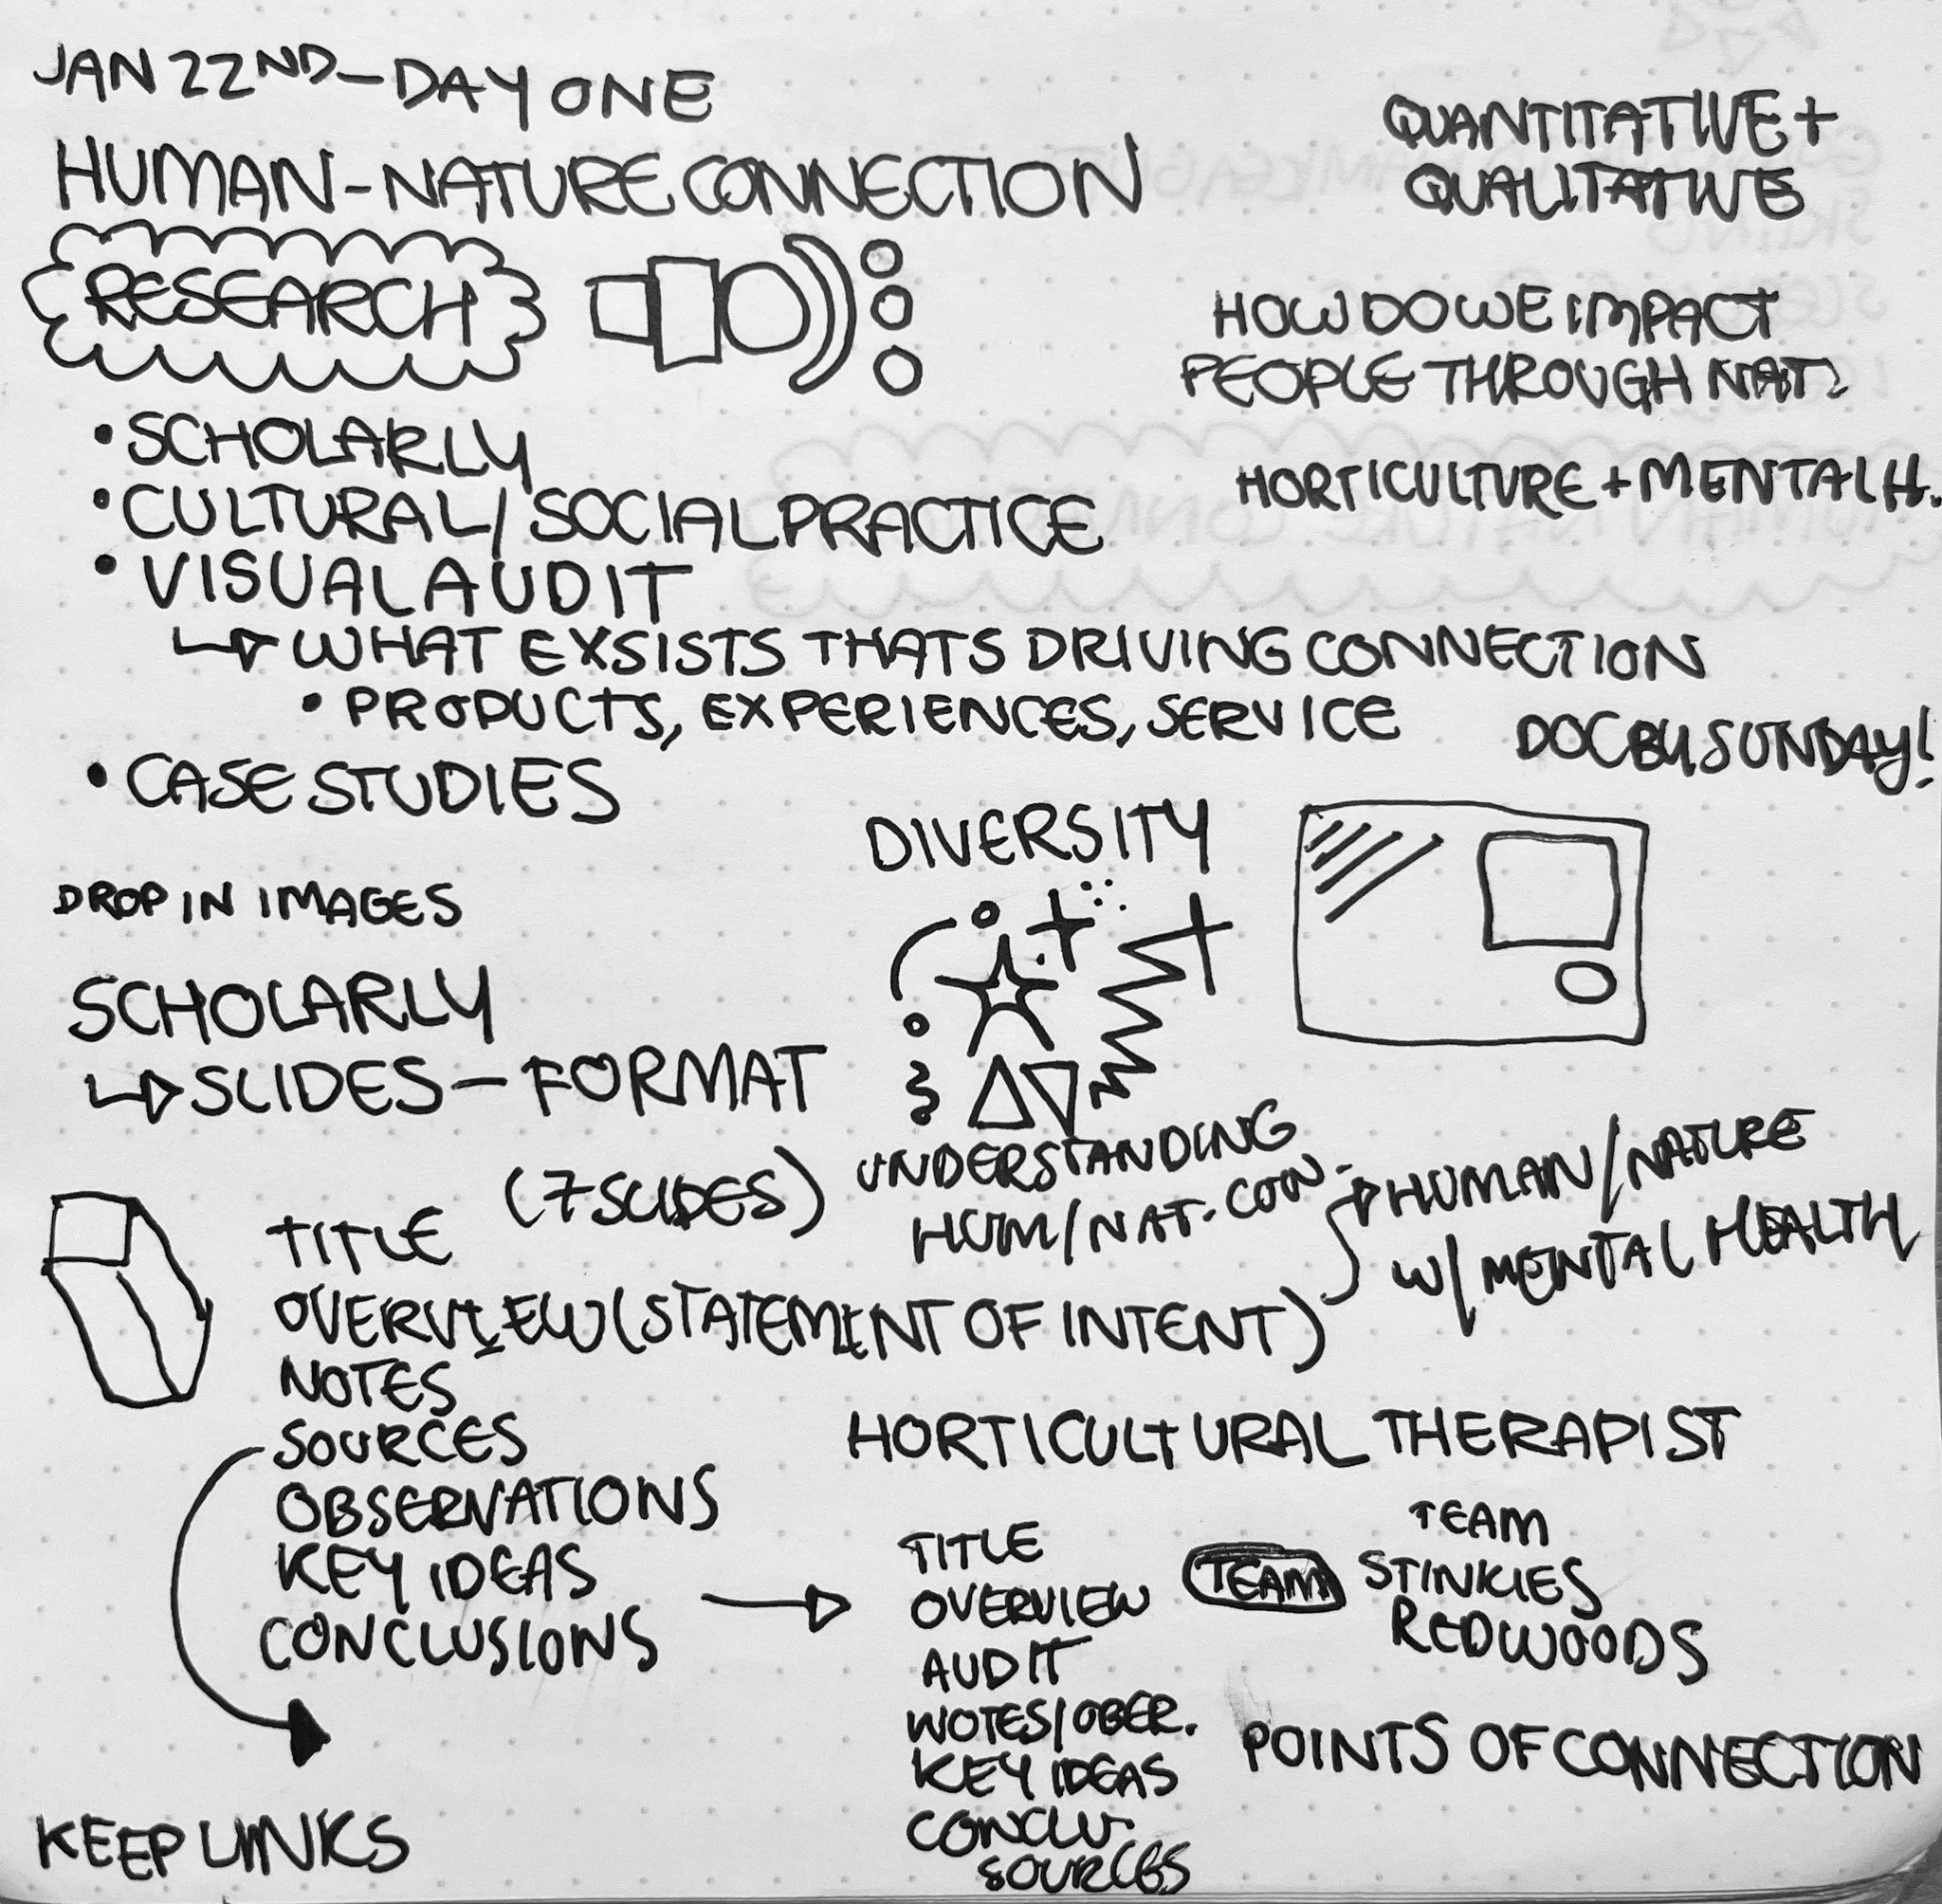 JAN 22ND - DAY ONE
HUMAN-NATURE CONNECTION
RESEARCH
• SCHOLARLY
• CULTURAL / SOCIAL PRACTICE
• VISUAL AUDIT
WHAT EXSISTS THATS DRIVING CONNECTION
• PRODUCTS, EXPERIENCES, SERVICE
• CASE STUDIES
QUANTITATIVE +
QUALITATIVE
HOW DO WE IMPACT
PEOPLE THROUGH NAT?
HORTICULTURE + MENTAL H.
DOC BY SUNDAY!
DIVERSITY
DROP IN IMAGES
SCHOLARLY
SLIDES - FORMAT
(7 SLIDES)
TITLE
OVERVIEW (STATEMENT OF INTENT)
NOTES
SOURCES
OBSERVATIONS
KEY IDEAS
CONCLUSIONS
KEEP LINKS
UNDERSTANDING
HUM/NAT. CON.
HUMAN/NATURE
W/ MENTAL HEALTH
HORTICULTURAL THERAPIST
TITLE
OVERVIEW
AUDIT
NOTES/OBER.
KEY IDEAS
CONCLU.
SOURCES
TEAM
TEAM
STINKIES
REDWOODS
POINTS OF CONNECTION